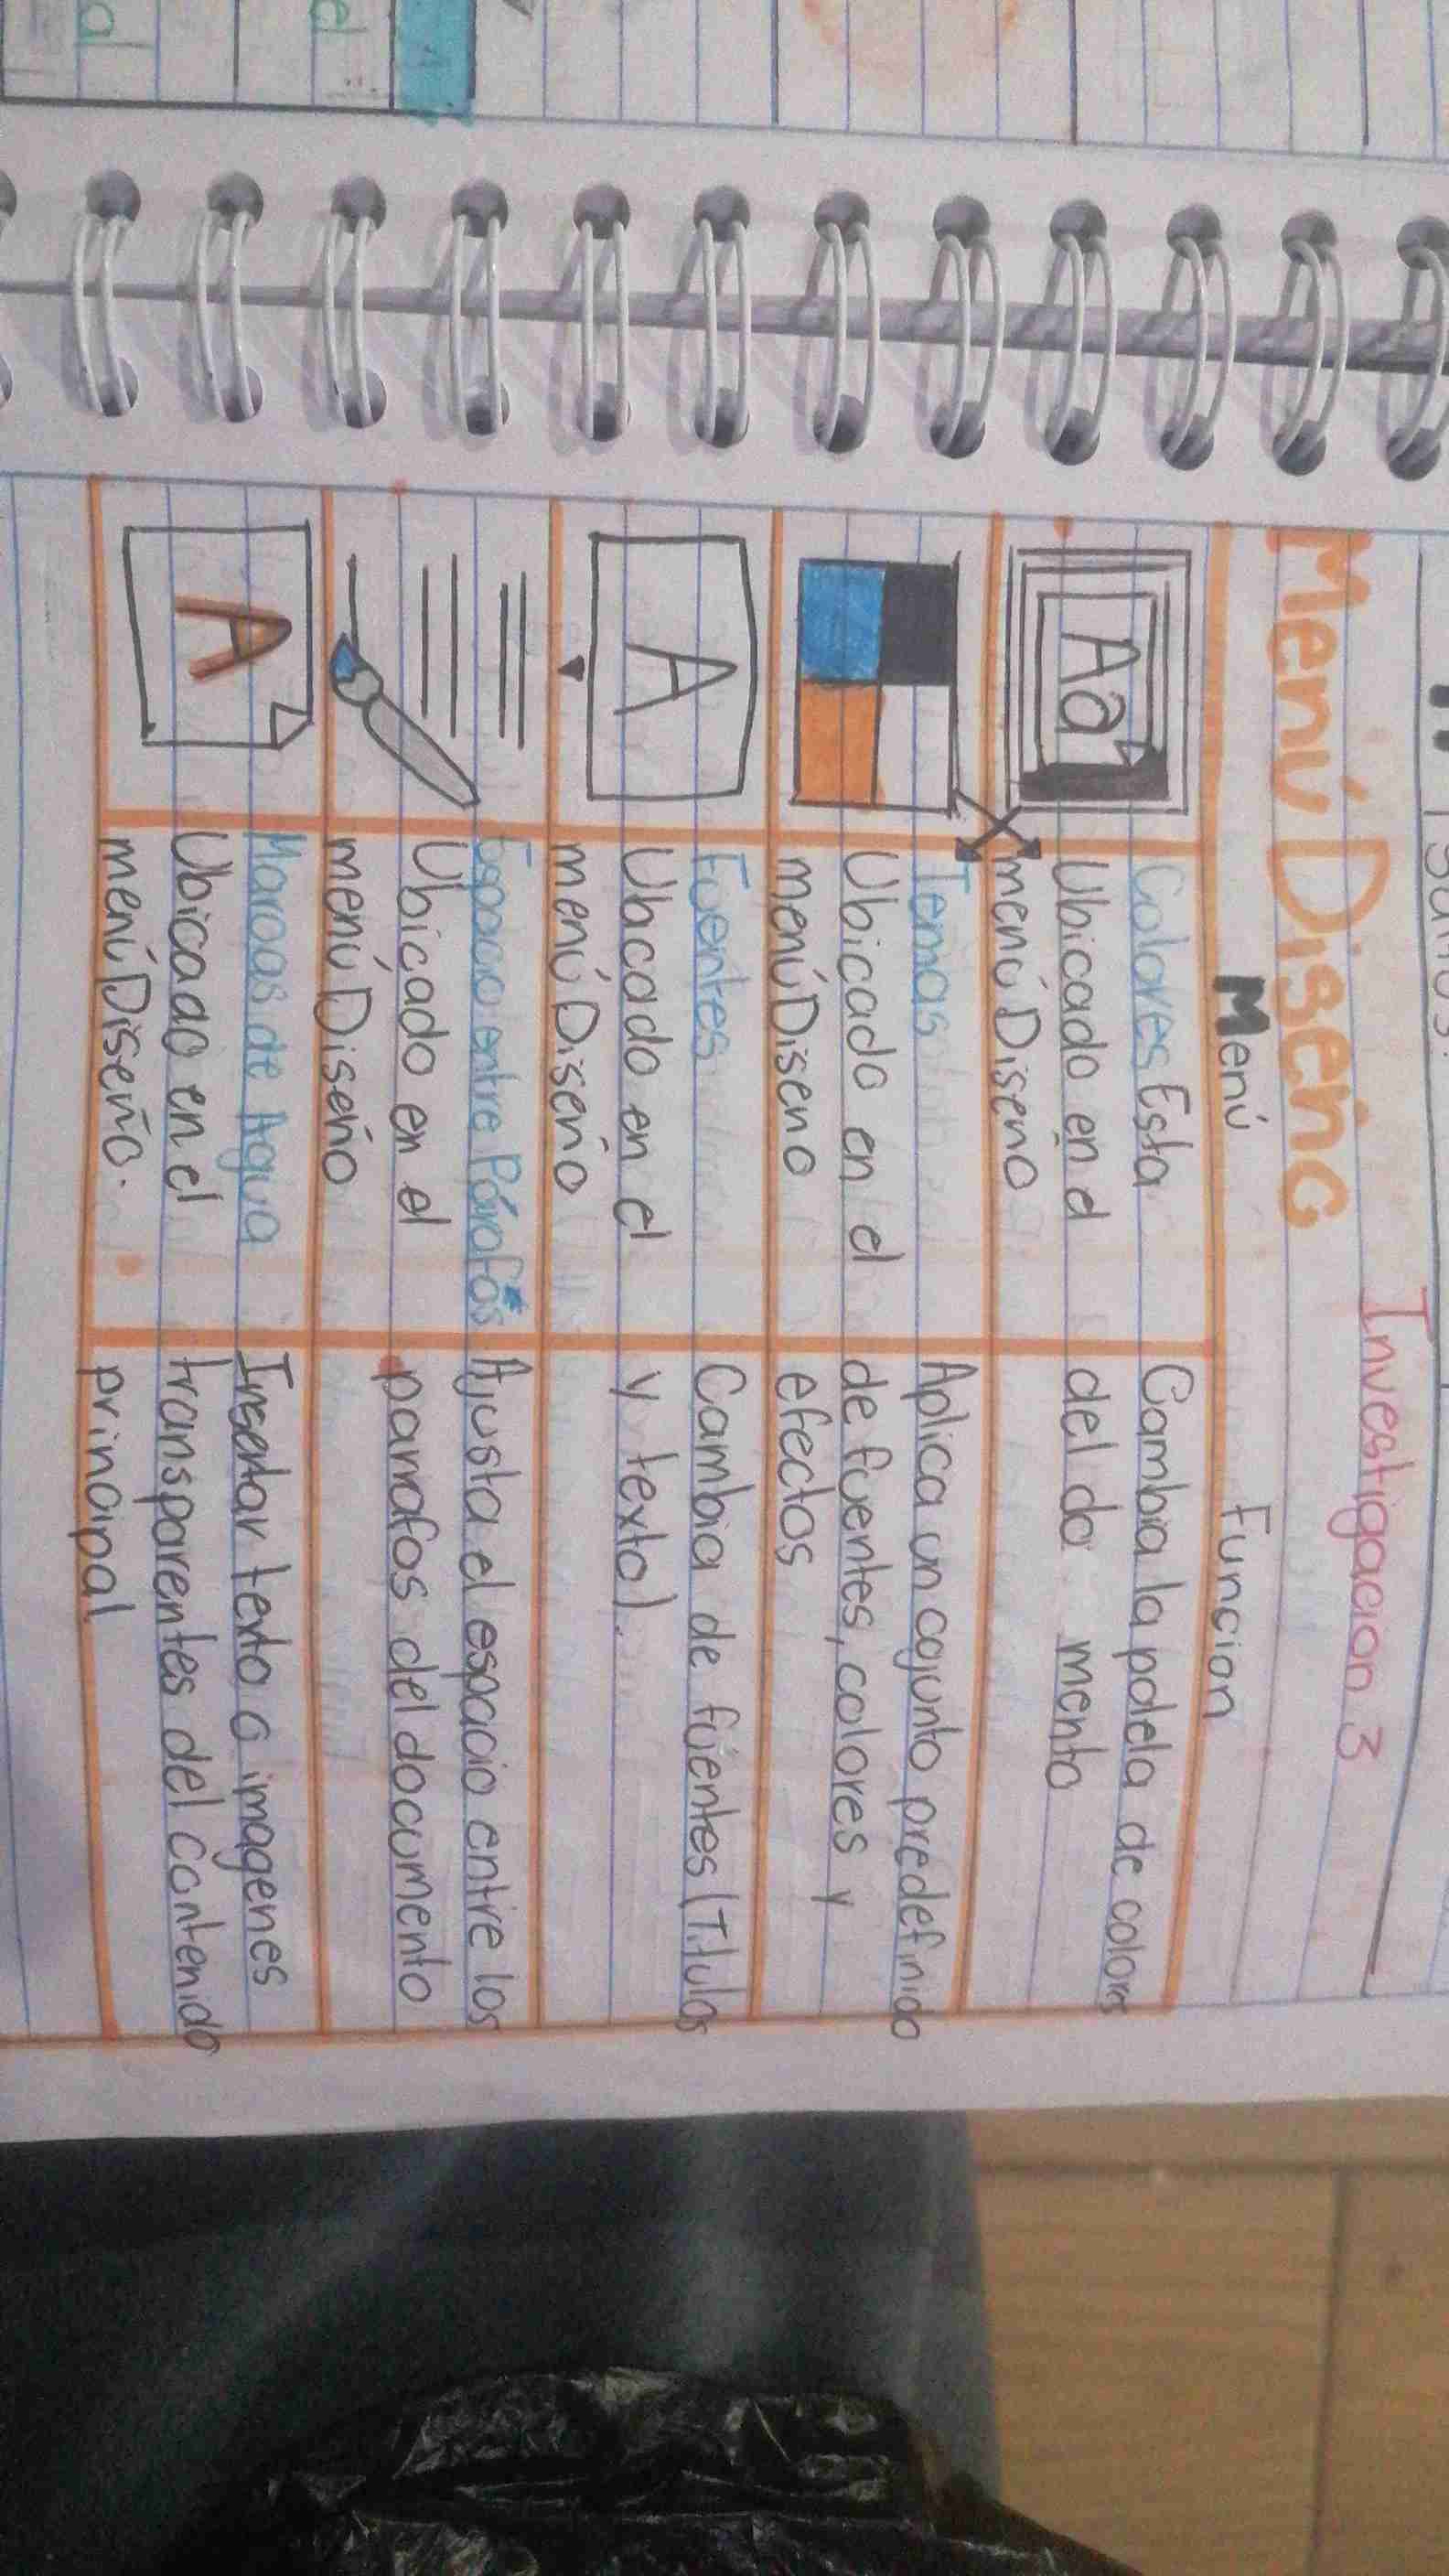 Investigacion 3
Menú Diseño
Menú
Funcion
Aa
Colores Esta
Ubicado en el
menú Diseno
Cambia la paleta de colores
del do mento
Temas
Ubicado en el
menú Diseno
Aplica un cojunto predefinido
de fuentes, colores y
efectos
A
Fuentes
Ubicado en el
menú Diseño
Cambia de fuentes (Titulos
y texto).
Espacio entre Párrafos
Ubicado en el
menú Diseño
Ajusta el espacio entre los
parrafos del documento
A
Marcas de Agua
Ubicado en el
menú Diseño.
Insertar texto o imagenes
transparentes del contenido
principal